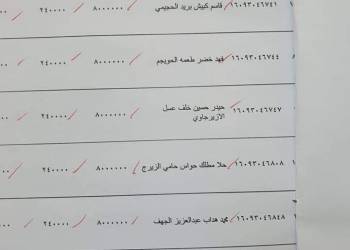 ١٦٠٩٣٠٤٦٧٤١ قاسم كبيش بريد الحجيمي ٨٠٠٠٠٠٠ ٢٤٠٠٠٠
١٦٠٩٣٠٤٦٧٤٤ فهد خضر طعمه الحويجم ٨٠٠٠٠٠٠ ٢٤٠٠٠٠
١٦٠٩٣٠٤٦٧٤٧ حيدر حسين خلف عسل
الازيرجاوي ٨٠٠٠٠٠٠ ٢٤٠٠٠٠
١٦٠٩٣٠٤٦٨٠٨ حلا مطلك حواس حامي الزيرج ٨٠٠٠٠٠٠ ٢٤٠٠٠٠
١٦٠٩٣٠٤٦٨٤٨ محمد هداب عبدالعزيز الجهف ٨٠٠٠٠٠٠ ٢٤٠٠٠٠